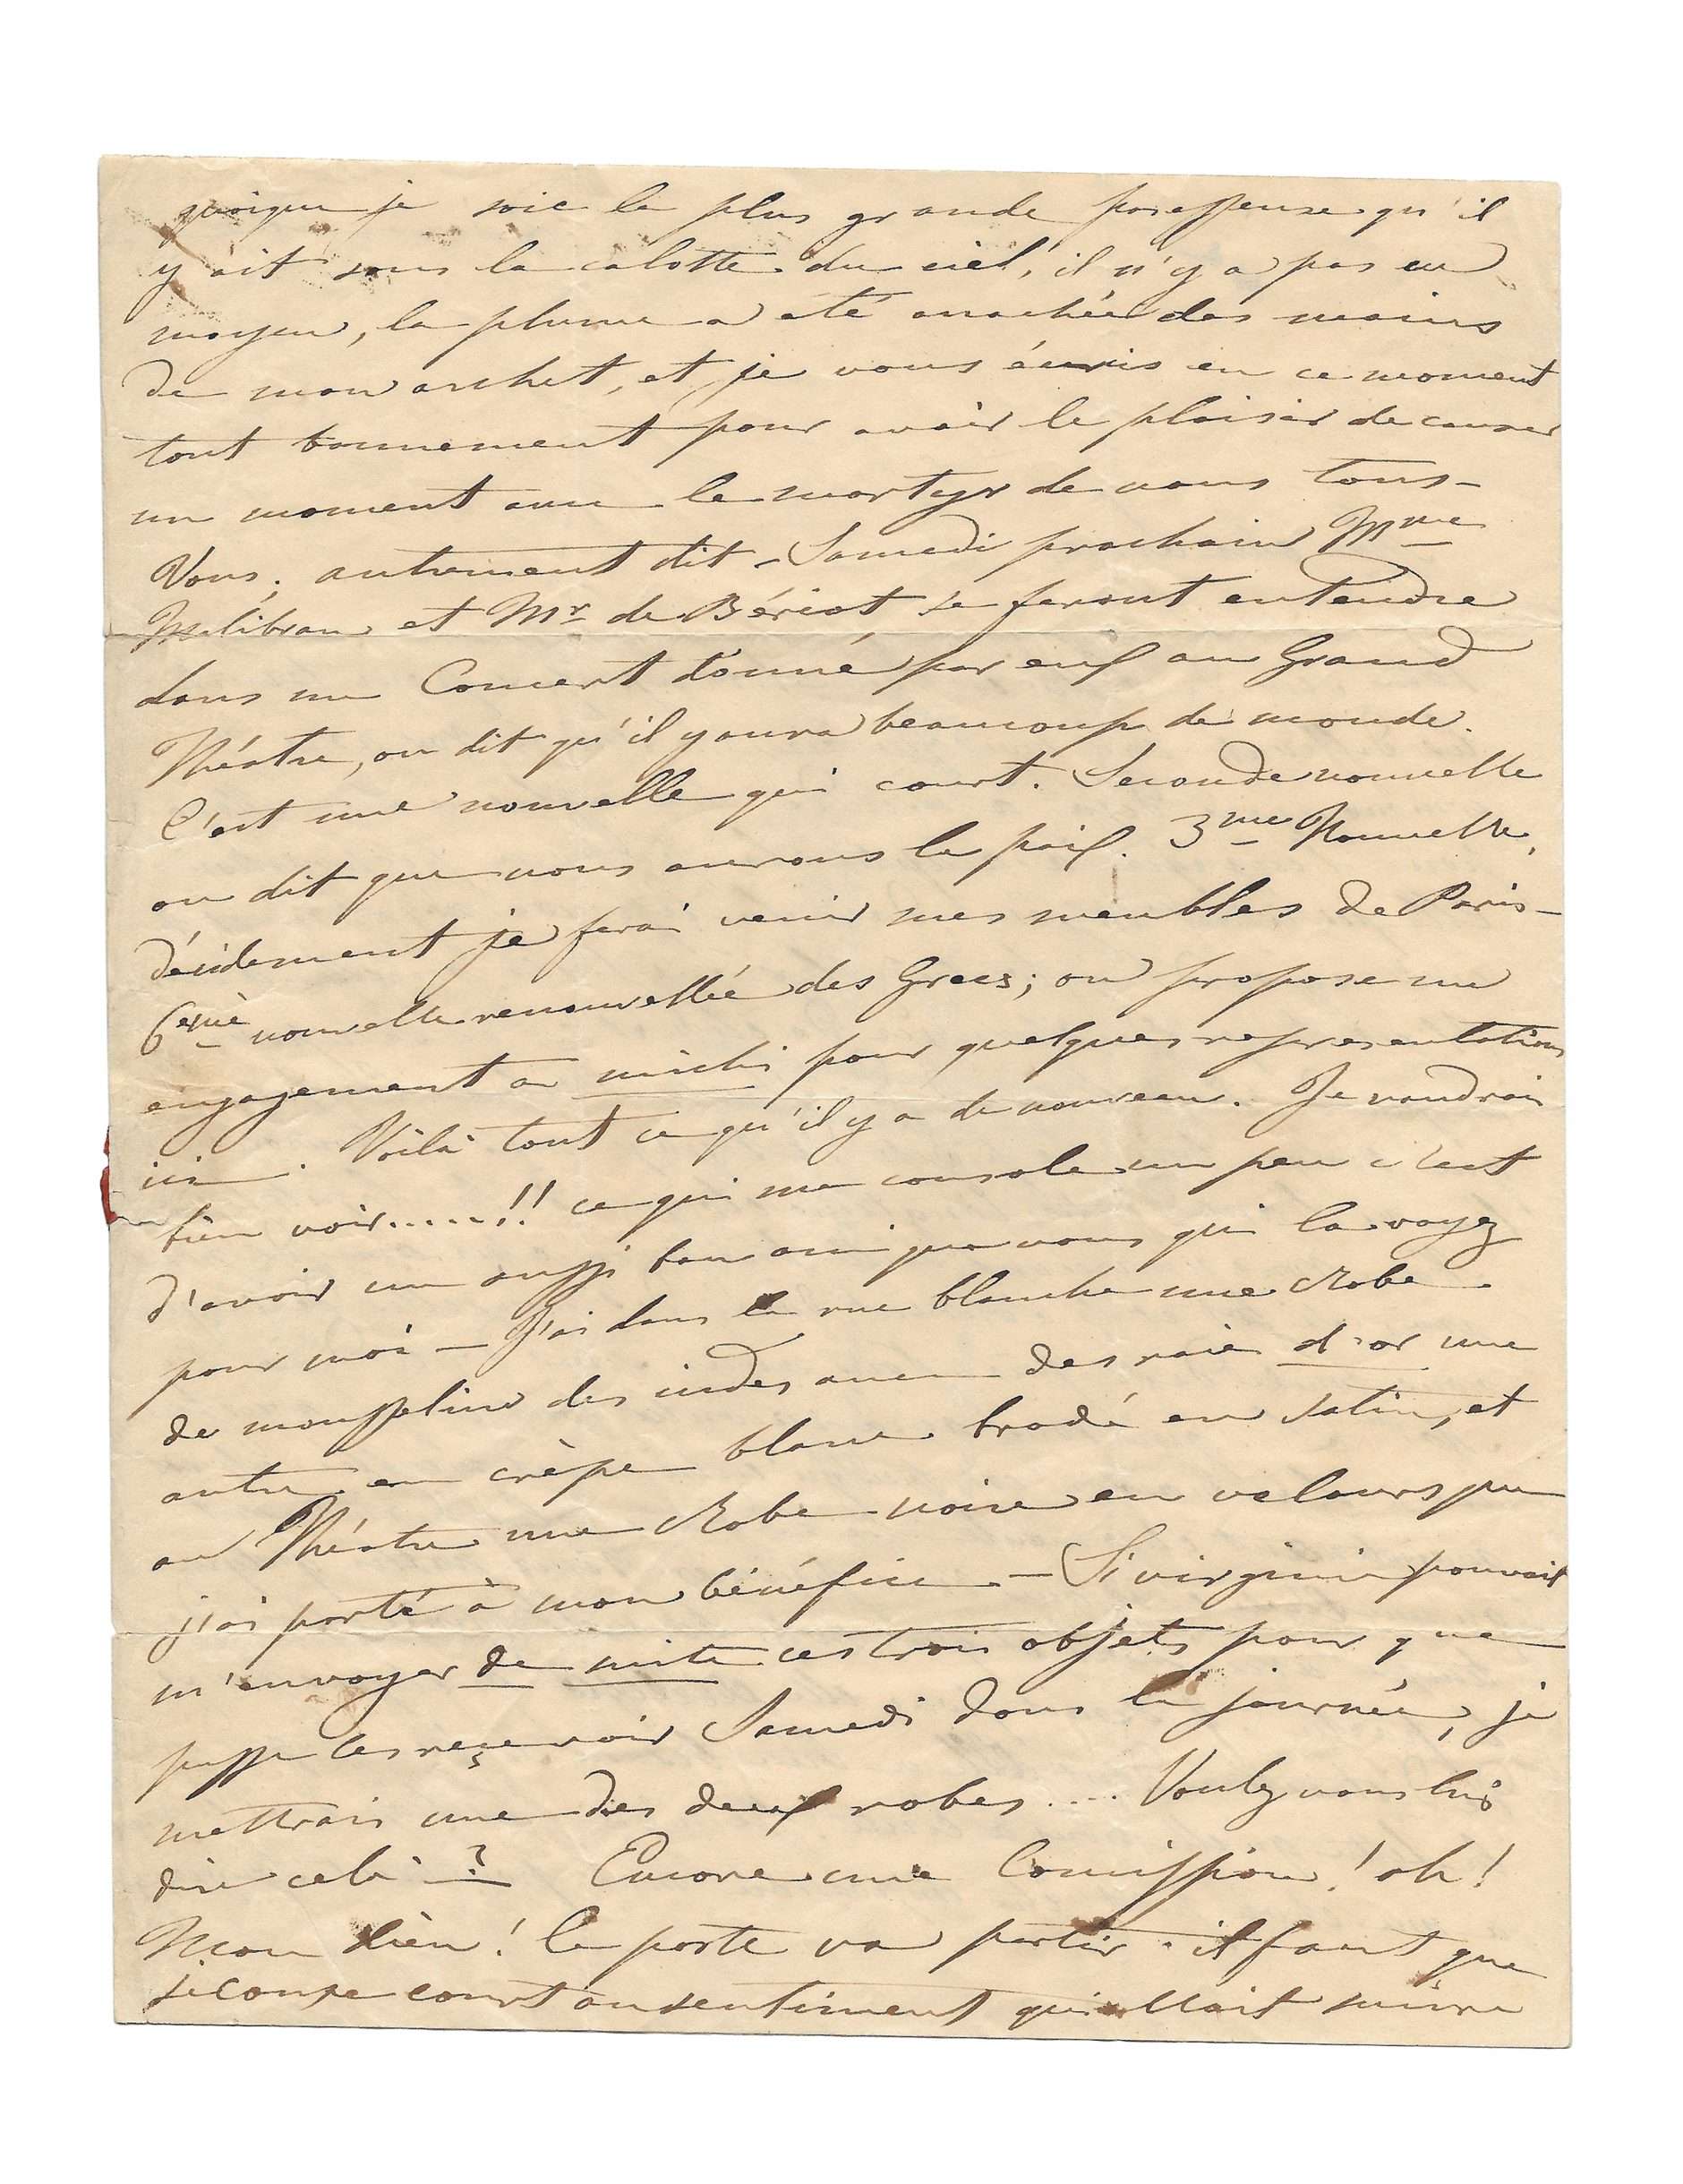 quoique je soie la plus grande paresseuse qu'il
y ait sous la calotte du ciel, il n'y a pas eu
moyen, la plume a été arrachée des mains
de mon archet, et je vous écris en ce moment
tout bonnement pour avoir le plaisir de causer
un moment avec le martyr de nous tous –
Vous, autrement dit – Samedi prochain Mme
Malibran et Mr de Bériot se feront entendre
dans un Concert donné par eux au Grand
Théatre, on dit qu'il y aura beaucoup de monde.
C'est une nouvelle qui court. Seconde nouvelle
on dit que nous aurons la paix. 3me Nouvelle,
décidement je ferai venir mes meubles de Paris –
6eme nouvelle renouvellée des Grecs; on propose un
engagement a michi pour quelques representations
ici. Voilà tout ce qu'il y a de nouveau. Je voudrais
bien voir.....!! ce qui me console un peu c'est
d'avoir un aussi bon ami que vous qui la voyez
pour moi – J'ai dans la rue blanche une Robe
de mousseline des indes avec des raies d'or une
autre en crèpe blanc brodé en satin, et
au Théatre une Robe noire en velours que
j'ai porté à mon bénéfice. – Si virginie pouvait
m'envoyer de suite ces trois objets pour que
pusse les reçevoir Samedi dans la journée, je
mettrais une des deux robes .... Voulez vous lui
dire celà ? Encore une Comission ! oh !
Mon dieu ! la poste va partir. il faut que
je coupe court au sentiment qui allait suivre